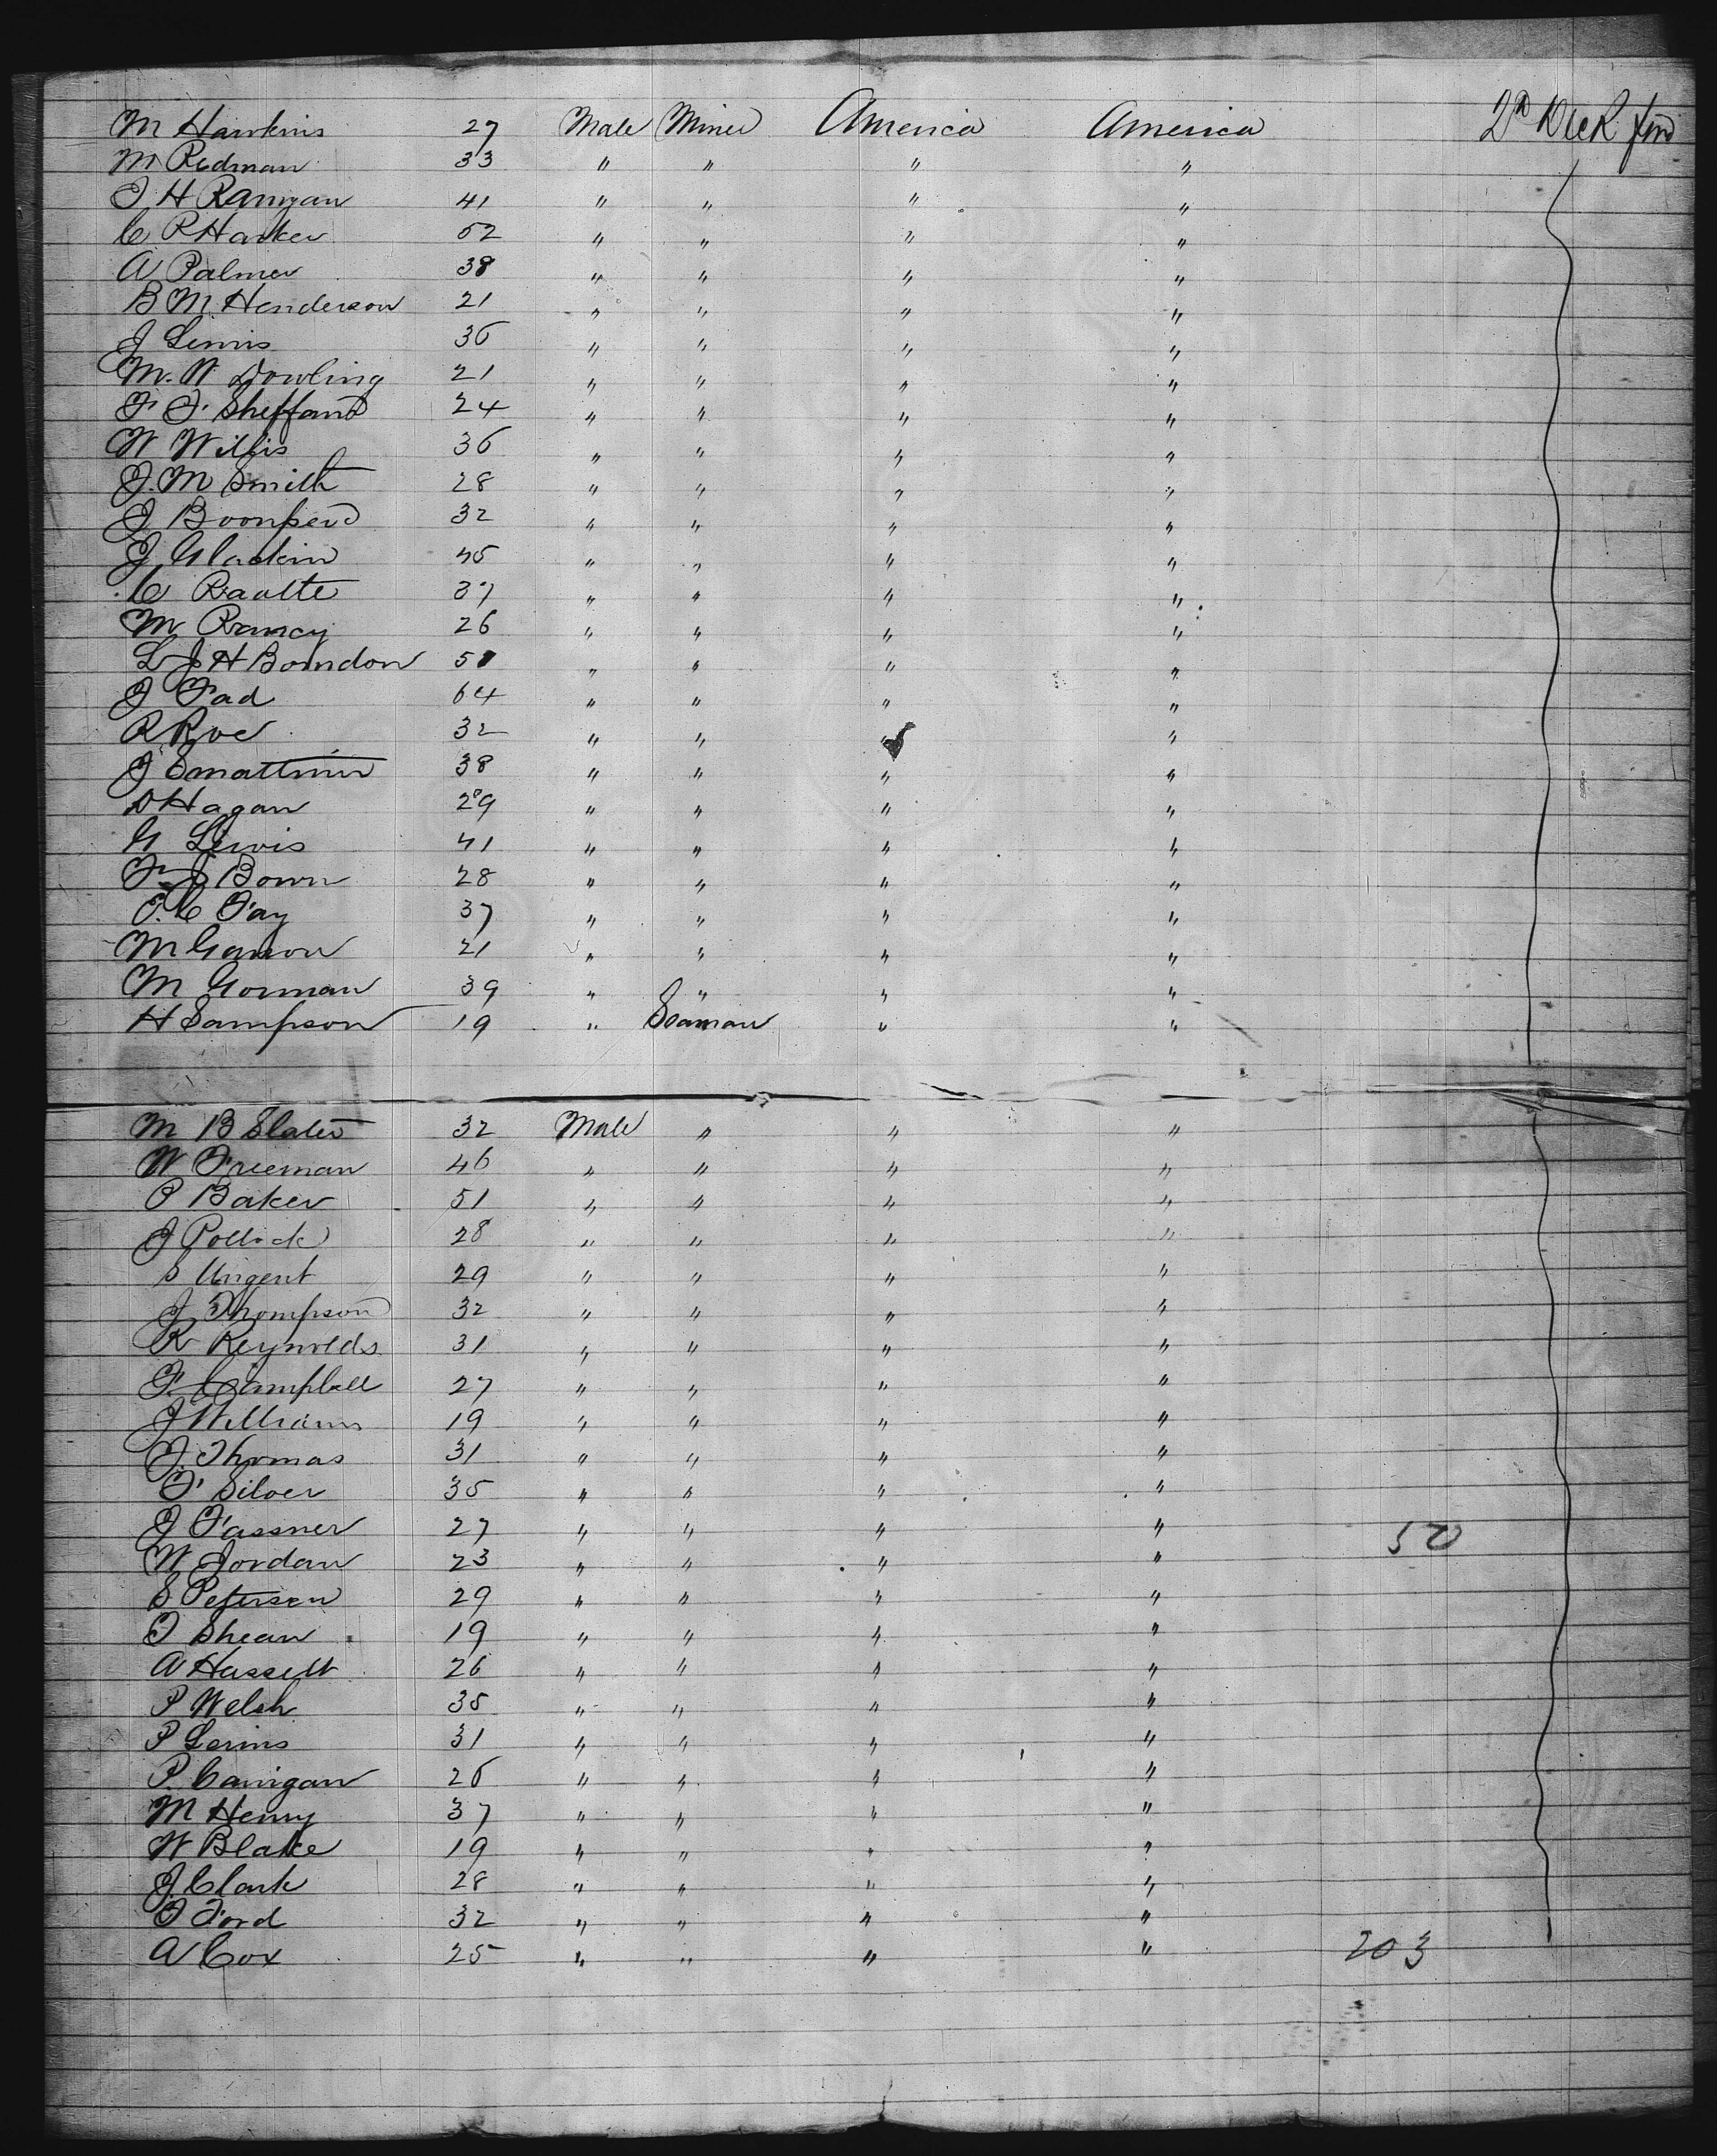 M Hawkins 27 Male Miner America America 2d Deck fwd
M Redman 33 " " " "
J H Ranigan 41 " " " "
C P Harker 52 " " " "
A Palmer 38 " " " "
B M Henderson 21 " " " "
J Lewis 36 " " " "
M. W Dowling 21 " " " "
F. F. Sheffand 24 " " " "
W Willis 36 " " " "
J. M Smith 28 " " " "
J 32 " " " "
J Glackin 45 " " " "
C Raolte 37 " " " "
M Rancy 26 " " " "
L J H Borndon 51 " " " "
J Fad 64 " " " "
R Roe 32 " " " "
J 38 " " " "
D Hagan 29 " " " "
G Lewis 41 " " " "
F J Bown 28 " " " "
E. C Fay 37 " " " "
M 21 " " " "
M Gorman 39 " " " "
H Sampson 19 " Seaman " "
M B Slater 32 Male " " "
W Freeman 46 " " " "
P Baker 51 " " " "
J Pollock 28 " " " "
S Urgent 29 " " " "
J Thompson 32 " " " "
R Reynolds 31 " " " "
F Campbell 27 " " " "
J Williams 19 " " " "
J. Thomas 31 " " " "
F Silver 35 " " " "
J Fassner 27 " " " " 50
W Jordan 23 " " " "
S Petersen 29 " " " "
T Shean 19 " " " "
A Hasselt 26 " " " "
P Welsh 35 " " " "
P Lewis 31 " " " "
P. Carrigan 26 " " " "
M Henry 37 " " " "
W Blake 19 " " " "
J. Clark 28 " " " "
T Ford 32 " " " "
A Cox 25 " " " " 203